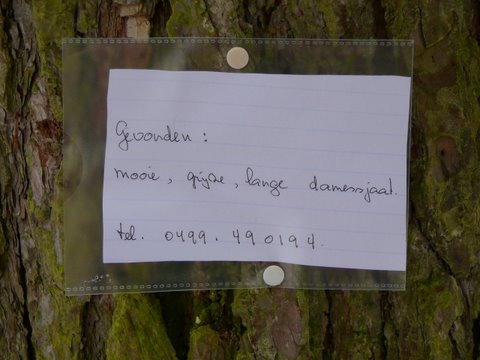 Gevonden :
mooie, grijze, lange damessjaal.
tel. 0499. 490194.